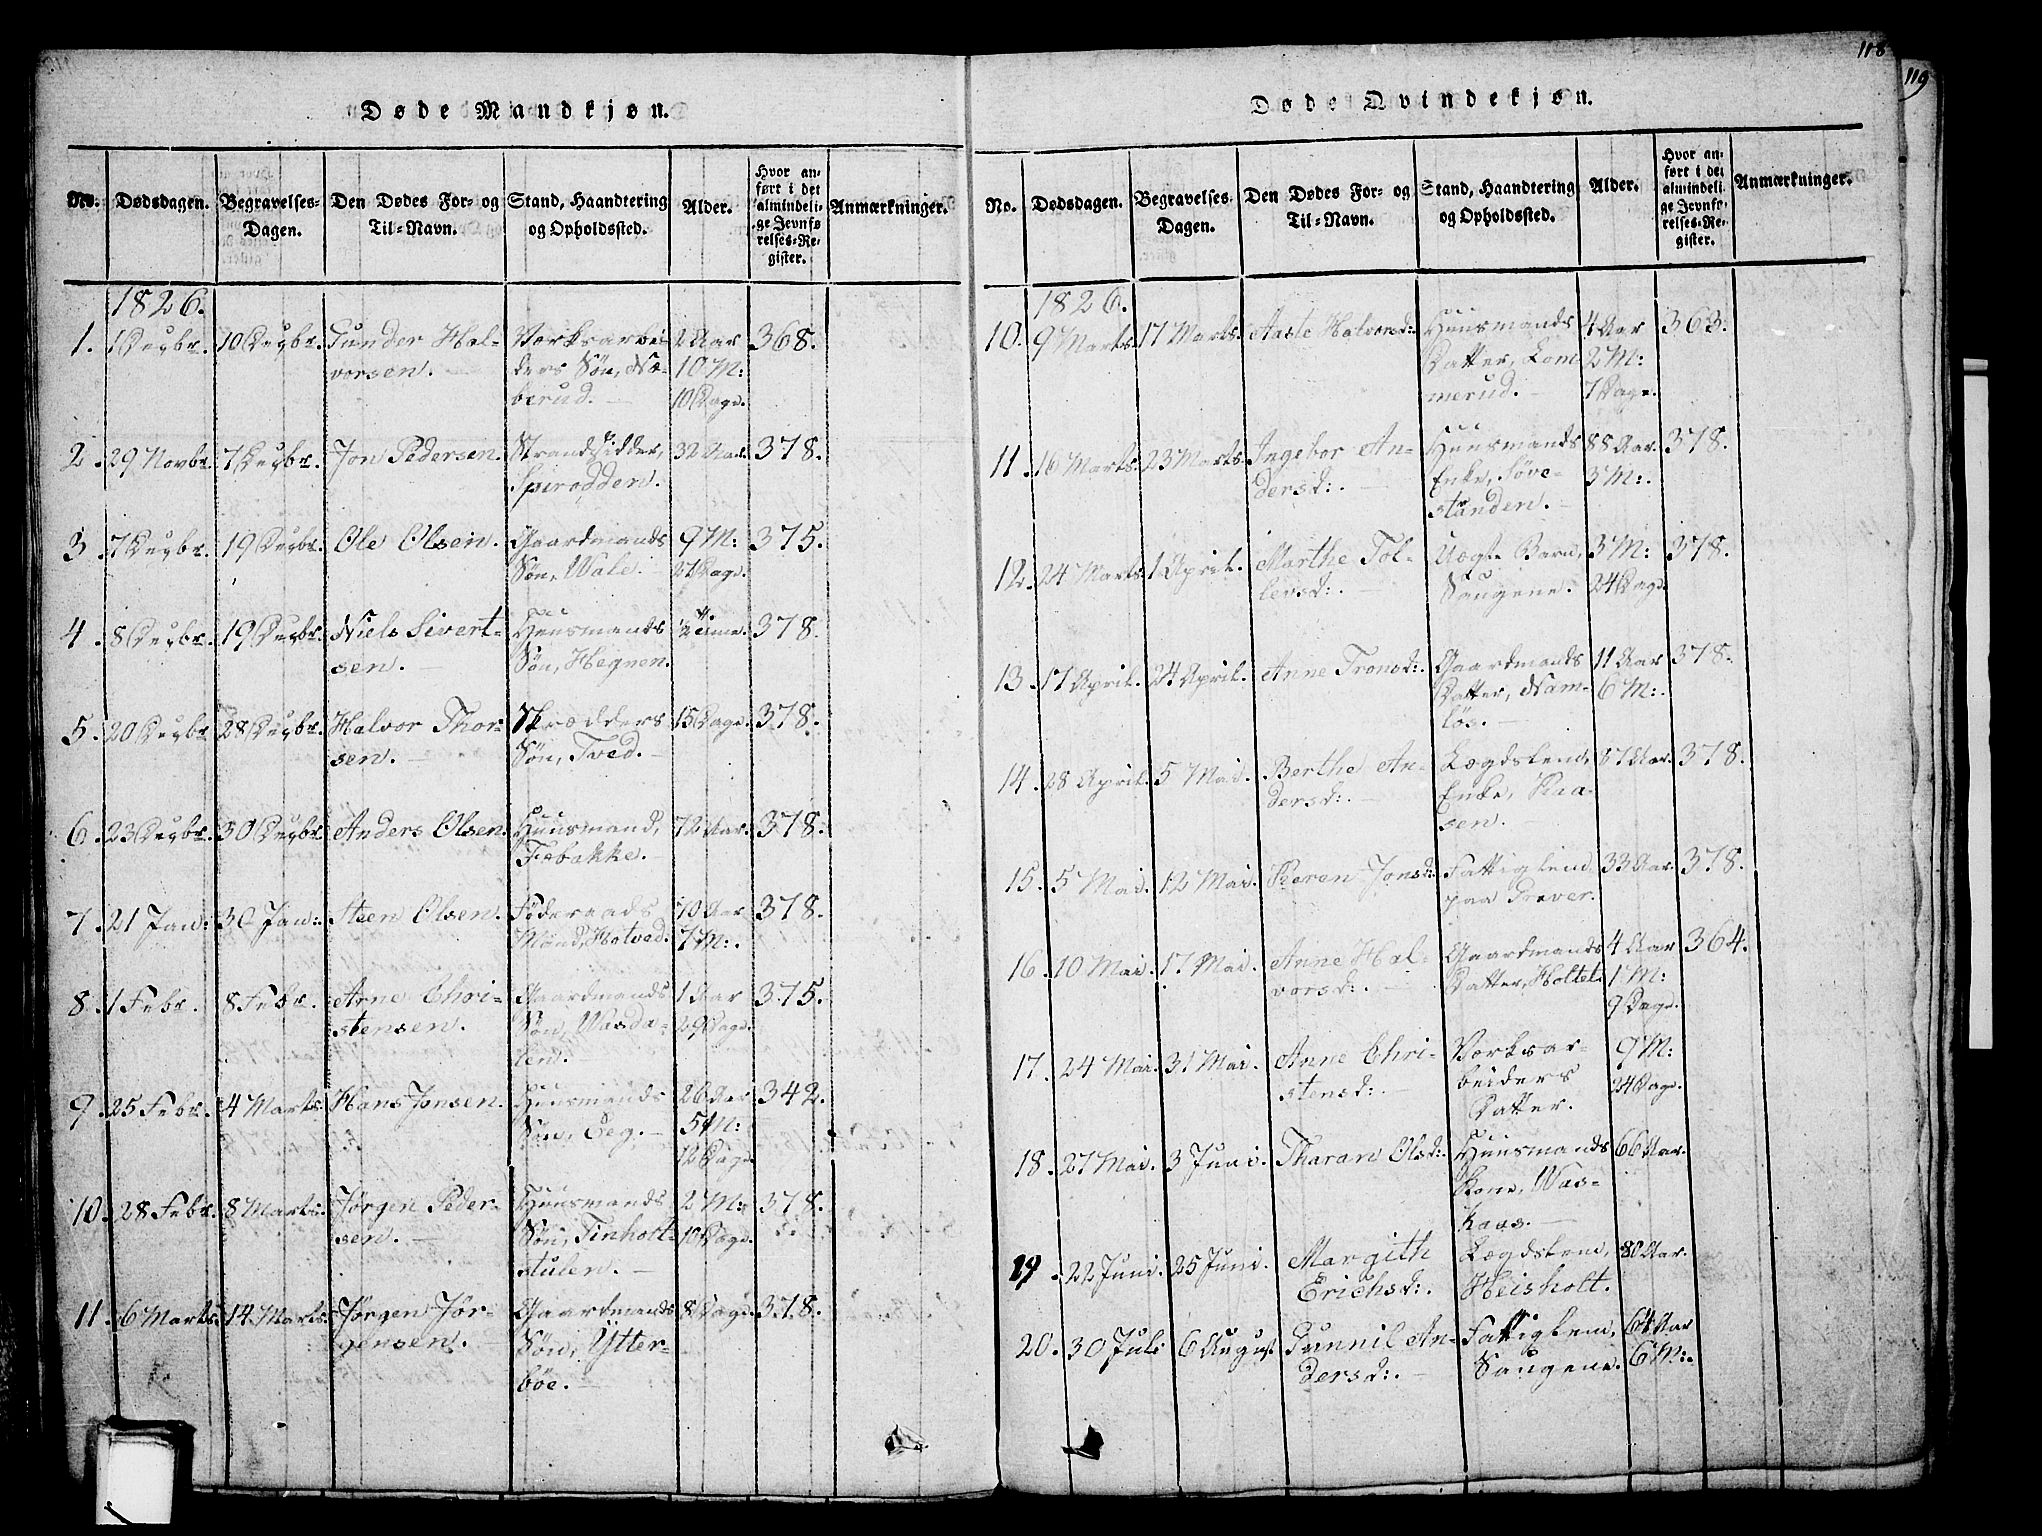 118
119
Døde Mandkjøn.
No. Dødsdagen. Begravelses-Dagen. Den Dødes For- og Til-Navn. Stand, Haandtering og Opholdssted. Alder. Hvor anført i det almindelige Jevnførelses-Register. Anmærkninger.
1826.
1. 1 Decbr. 10 Decbr. Gunder Hal- Værksarbei- 2 Aar 368.
vorsen. ders Søn, Næ- 10 M:
berud. 10 Dage.
2. 29 Novbr. 7 Decbr. Jon Pedersen. Strandsidder, 32 Aar. 378.
Spirodden.
3. 7 Decbr. 19 Decbr. Ole Olsen. Gaardmands 9 M: 375.
Søn, Wale 27 Dage.
4. 8 Decbr. 19 Decbr. Niels Sivert- Huusmands 378.
sen. Søn, Hegnen.
5. 20 Decbr. 28 Decbr. Halvor Thor- Skrædders 15 Dage. 378.
sen. Søn, Tved.
6. 23 Decbr. 30 Decbr. Anders Olsen. Huusmand, 72 Aar. 378.
Febakke.
7. 21 Jan: 30 Jan: Steen Olsen. Føderaads 70 Aar 378.
Mand, Hotved. 7 M:.
8. 1 Febr. 8 Febr. Arne Chri- Gaardmands 1 Aar 375.
stensen. Søn, Wasda- 29 Dage.
len.
9. 25 Febr. 4 Marts. Hans Jonsen. Huusmands 26 Aar 342.
Søn, Eeg. 5 M:
12 Dage.
10. 28 Febr. 8 Marts. Jørgen Peder- Huusmands 2 M: 378.
sen. Søn, Tinholt- 10 Dage.
stulen.
11. 6 Marts. 14 Marts. Jørgen Jør- Gaardmands 8 Dage. 378.
gensen. Søn, Ytter-
böe.
Døde Qvindekjøn.
No. Dødsdagen. Begravelses Dagen. Den Dødes For- og Til-Navn. Stand, Haandtering og Opholdssted. Alder. Hvor anført i det almindelige Jevnførelses-Register. Anmærkninger.
1826.
10. 9 Marts. 17 Marts. Aaste Halvorsd: Huusmands 4 Aar 363.
Datter, Lom- 2 M:
merud. 7 Dage.
11. 16 Marts. 23 Marts. Ingebor An- Huusmands 88 Aar. 378.
dersd:. Enke, Søve- 3 M:.
standen.
12. 24 Marts. 1 April. Marthe Tol- Uægte Barn, 3 M: 378.
levsd:. Saugene. 24 Dage.
13. 17 April. 24 April. Anne Tronsd:. Gaardmands 11 Aar 378.
Datter, Nam- 6 M:.
løs.
14. 28 April. 5 Mai. Berthe An- Lægdslem, 87 Aar. 378.
dersd:. Enke, Raa-
sen.
15. 5 Mai. 12 Mai. Peeren Jonsd: Fattiglem, 33 Aar. 378.
paa Grever.
16. 10 Mai. 17 Mai. Anne Hal- Gaardmands 4 Aar 364.
vorsd:. Datter, Holtet. 1 M:
9 Dage.
17. 24 Mai. 31 Mai. Anne Chri- Værksar- 9 M:
stensd:. beiders 24 Dage.
Datter.
18. 27 Mai. 3 Juni. Tharan Olsd: Huusmands 66 Aar.
Kone, Was-
kaas.
19. 22 Juni. 25 Juni. Margith Lægdslem, 80 Aar.
Erichsd:. Heisholt.
20. 30 Juli 6 August Gunnil An- Fattiglem, 64 Aar
dersd:. Saugene. 6 M:.